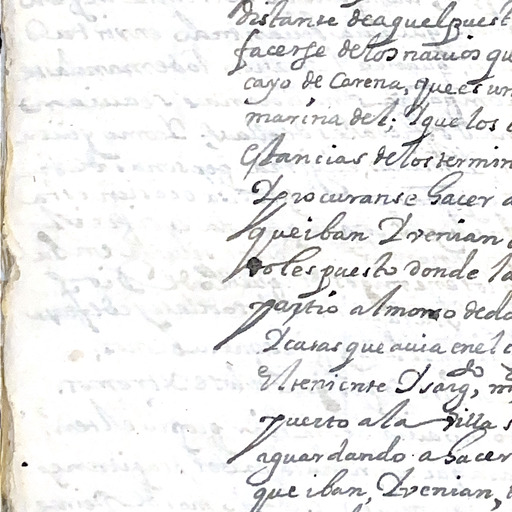 distante de aquel puest
facerse de los nauios qu
cayo de Carena, que es un
marina del; Y que los
estancias de los termin
Y procuranse hacer a
que iban Y venian
oles puesto donde la
partio al morro de do
Y casas que auia en el
El teniente Y sarg.do,
puerto a la villa s
aguardando a hacer
que iban, Y venian,